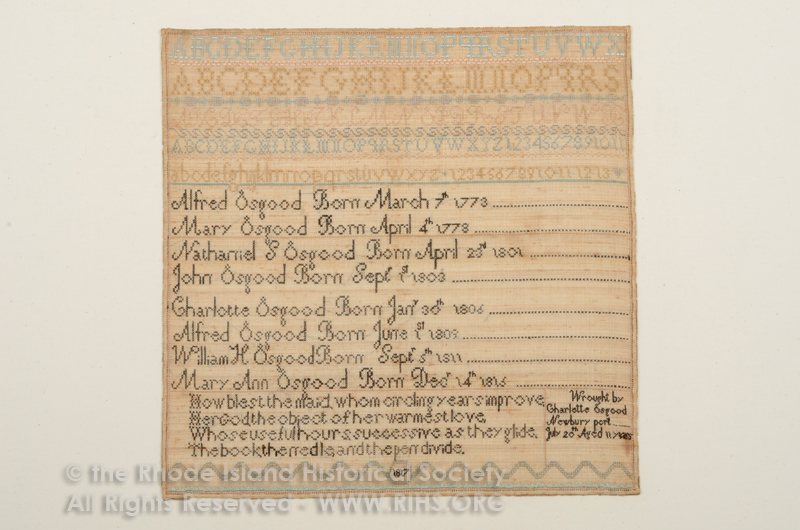 ABCDEFGHIJKLMNOPQRSTUVWX
ABCDEFGHIJKLMNOPQRS
ABCDEFGHIJKLMNOPQRSTUVWXYZ1234567891011
abcdefghijklmnopqrstuvwxyz 12345678910111213
Alfred Osgood Born March 7th 1773
Mary Osgood Born April 4th 1778
Nathaniel S Osgood Born April 23d 1801
John Osgood Born Sept 1st 1803
Charlotte Osgood Born Jany 30th 1806
Alfred Osgood Born June 1st 1809
William H Osgood Born Sept 5th 1811
Mary Ann Osgood Born Decr 14th 1815
How blest the maid, whom circling years improve,
Her God the object of her warmest love,
Whose usefull hours, successive as they glide,
The book, the nedle, and the pen divide.
Wrought by
Charlotte Osgood
Newbury port
July 20th Aged 11 years
1817
© the Rhode Island Historical Society
All Rights Reserved - WWW.RIHS.ORG